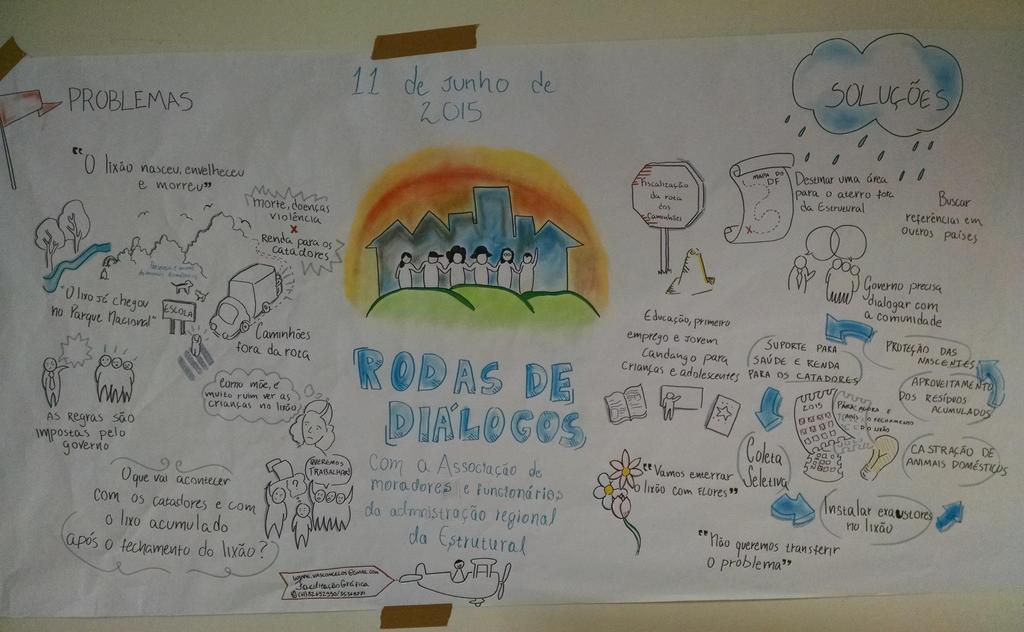 11 de Junho de
2015
PROBLEMAS
"O lixão nasceu, envelheceu
e morreu"
morte, doenças
violência
x
Renda para os
catadores
"O lixo já chegou
no Parque Nacional"
ESCOLA
Caminhões
fora da rota
AS REGRAS SÃO
impostas pelo
governo
Como mãe, é
muito ruim ver as
crianças no lixão
QUEREMOS
TRABALHAR!
?
O que vai acontecer
com os catadores e com
o lixo acumulado
após o fechamento do lixão?
RODAS DE
DIÁLOGOS
Com a Associação de
moradores e funcionários
da admnistração regional
da Estrutural
Facilitação Gráfica
SOLUÇÕES
Fiscalização
da rota
dos
Caminhões
MAPA DO
DF
X
Destinar uma área
para o aterro fora
da Estrutural
Buscar
referências em
outros países
Governo precisa
dialogar com
a comunidade
Educação, primeiro
emprego e Jovem
Candango para
crianças e adolescentes
SUPORTE PARA
SAÚDE E RENDA
PARA OS CATADORES
PROTEÇÃO DAS
NASCENTES
APROVEITAMENTO
DOS RESÍDUOS
ACUMULADOS
2015
CASTRAÇÃO DE
ANIMAIS DOMÉSTICOS
Coleta
Seletiva
Instalar exaustores
no lixão
"Vamos enterrar
o lixão com FLORES"
"Não queremos transferir
o problema"